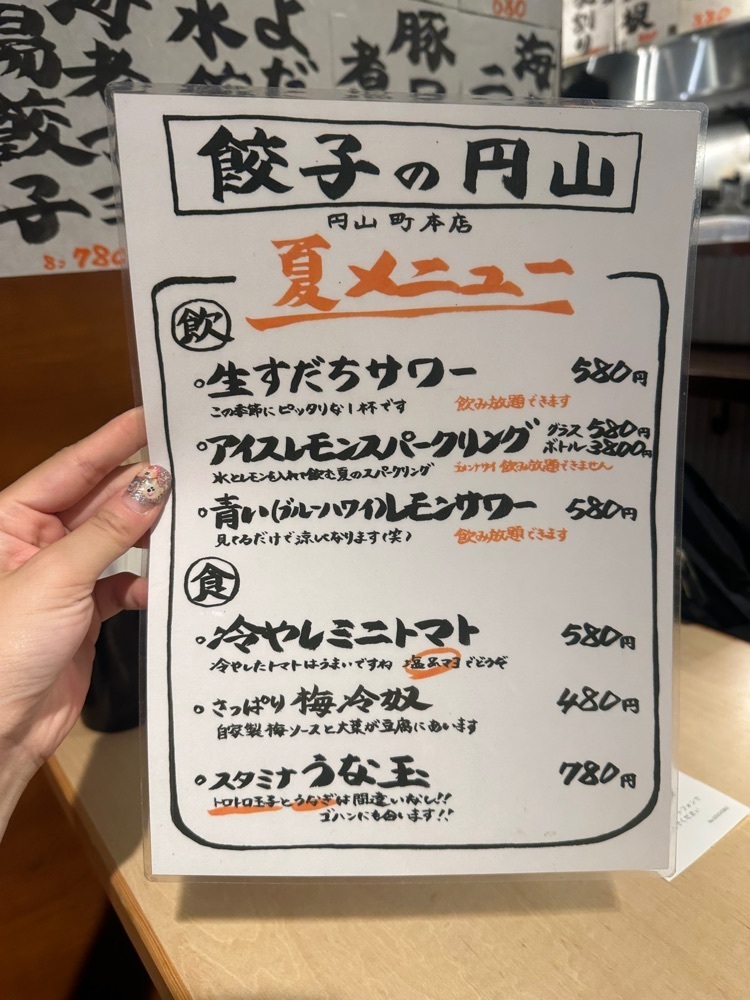 餃子の円山
円山町本店
夏メニュー
飲
生すだちサワー 580円
この季節にピッタリな1杯です 飲み放題できます
アイスレモンスパークリング グラス 580円
ボトル 3800円
氷とレモンを入れて飲む夏のスパークリング ゴメンナサイ 飲み放題できません
青い(ブルーハワイ)レモンサワー 580円
見てるだけで涼しくなります(笑) 飲み放題できます
食
冷やしミニトマト 580円
冷やしたトマトはうまいですね 塩orマヨでどうぞ
さっぱり梅冷奴 480円
自家製梅ソースと大葉が豆腐にあいます
スタミナうな玉 780円
トロトロ玉子とうなぎは間違いなし!!
ゴハンにも合います!!
餃子
8コ 780
水
よだ
豚
海
者
880